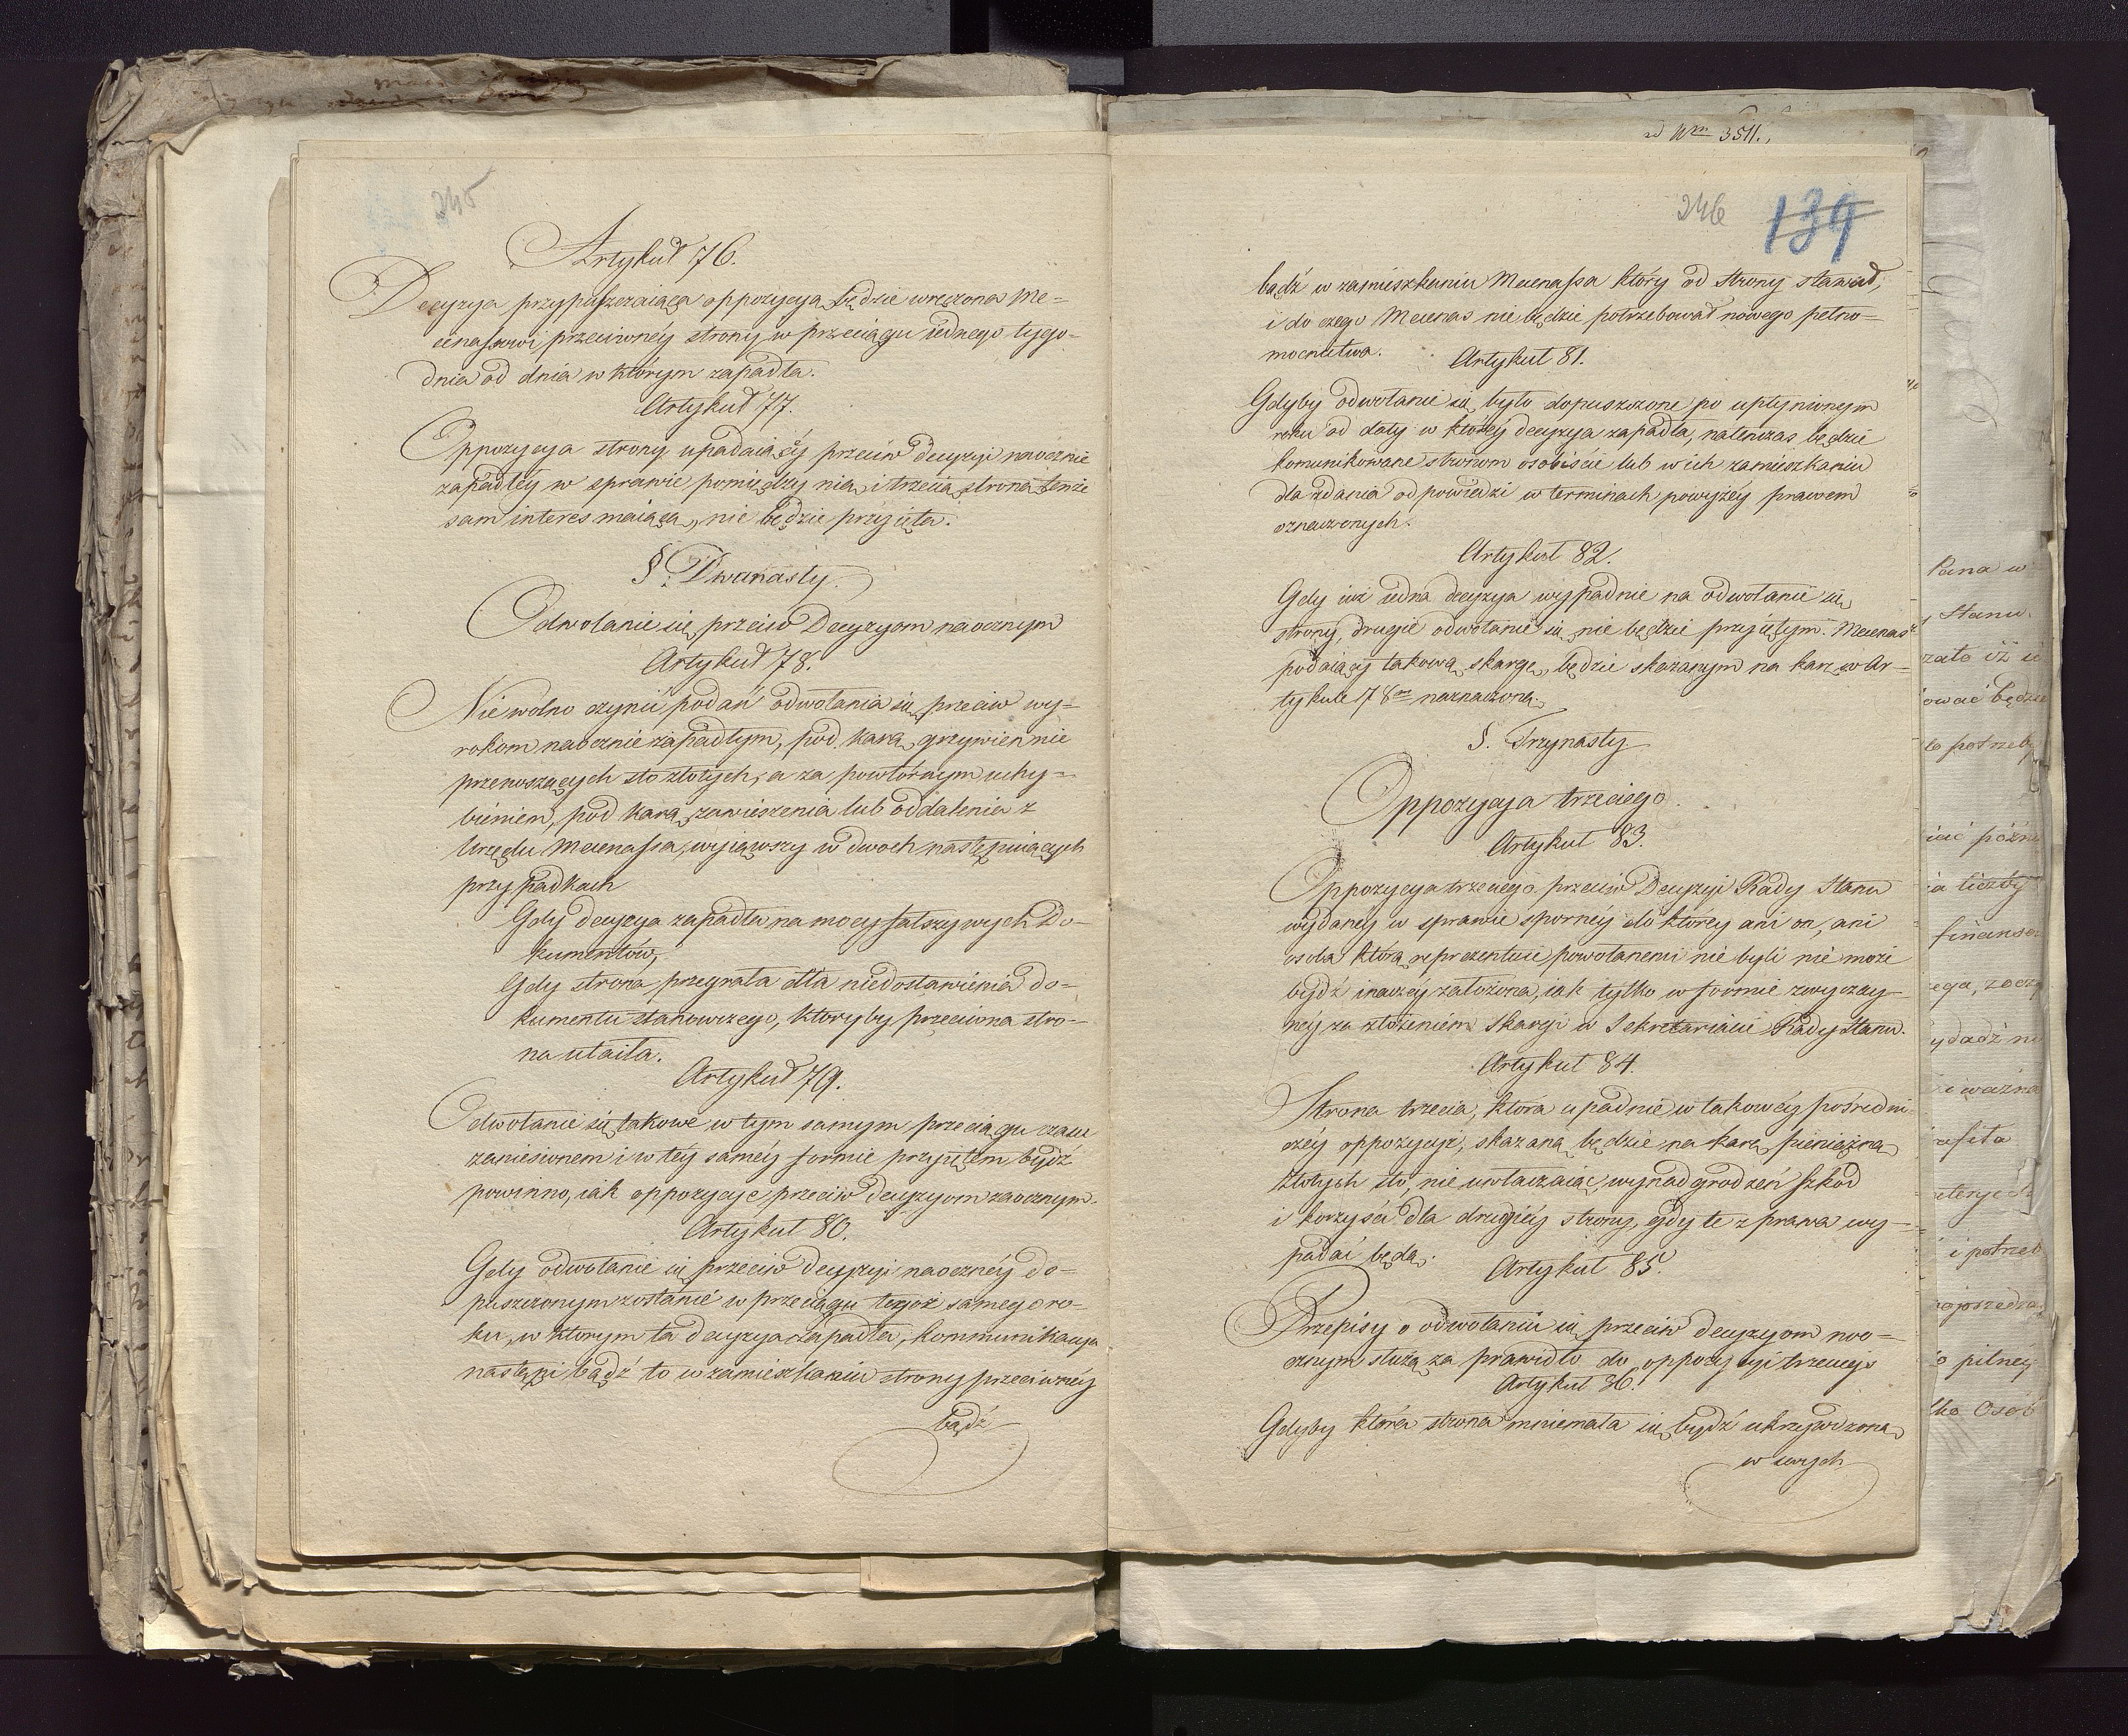 245
Artykuł 76.
Decyzya przypuszczaiąca oppozycyą będzie wręczona Me-
cenassowi przeciwnéy strony w przeciągu iednego tygo-
dnia od dnia w którym zapadła.
Artykuł 77.
Oppozycya strony upadaiącéy przeciw decyzyi naocznie
zapadłéy w sprawie pomiędzy nią i trzecią stroną tenże
sam interes maiącą, nie będzie przyięta.
§. Dwanasty.
Odwołanie się przeciw Decyzyom naocznym
Artykuł 78.
Nie wolno czynić podań odwołania się przeciw wy-
rokom naocznie zapadłym, pod karą grzywien nie
przenoszących sto złotych, a za powtórnym uchy-
bieniem, pod karą zawieszenia lub oddalenia z
Urzędu Mecenassa, wyiąwszy w dwoch następuiących
przypadkach
Gdy decyzya zapadła na mocy fałszywych Do-
kumentów,
Gdy strona przegrała dla niedostawienia do-
kumentu stanowczego, któryby przeciwna stro-
na utaiła.
Artykuł 79.
Odwołanie się takowe w tym samym przeciągu czasu
zaniesionem i w téy saméy formie przyiętem bydź
powinno, iak oppozycye przeciw decyzyom zaocznym.
Artykuł 80.
Gdy odwołanie się przeciw decyzyi naocznéy do-
puszczonym zostanie w przeciągu tegoż samego ro-
ku, w którym ta decyzya zapadła, kommunikacya
nastąpi bądź to w zamieszkaniu strony przeciwnéy
bądź
ad Nrm 3511.
246 139
bądź w zamieszkaniu Mecenassa który od strony stawał,
i do czego Mecenas nie będzie potrzebował nowego pełno-
mocnictwa.
Artykuł 81.
Gdyby odwołanie się było dopuszczone po upłynionym
roku od daty w któréy decyzya zapadła, natenczas będzie
komunikowane stronom osobiście lub w ich zamieszkaniu
dla zdania odpowiedzi w terminach powyżéy prawem
oznaczonych.
Artykuł 82.
Gdy iuż iedna decyzya wypadnie na odwołanie się
strony, drugie odwołanie się nie będzie przyiętym. Mecenas
podaiący takową skargę, będzie skazanym na karę w Ar-
tykule 78m naznaczoną.
§. Trzynasty
Oppozycya trzeciego.
Artykuł 83.
Oppozycya trzeciego przeciw Decyzyi Rady Stanu
wydanéy w sprawie spornéy do któréy ani on, ani
osoba którą reprezentuie powołanemi nie byli nie może
bydź inaczey założona, iak tylko w formie zwyczay-
néy za złożeniem skargi w Sekretariacie Rady Stanu.
Artykuł 84.
Strona trzecia, która upadnie w takowéy pośredni-
czéy oppozycyi, skazaną będzie na karę pieniężną
złotych sto, nie uwłaczaiąc wynadgrodzeń szkód
i korzyści dla drugiéy strony, gdy te z prawa wy-
padać będą.
Artykuł 85.
Przepisy o odwołaniu się przeciw decyzyom nao-
cznym służą za prawidło do oppozycyi trzeciego
Artykuł 86.
Gdyby która strona mniemała się bydź ukrzywdzoną
w swych
Pana w
Stanu
ować będzie
to potrzeb
liczby
finanso
i ważna
i potrzeb
pilnéy
Osób